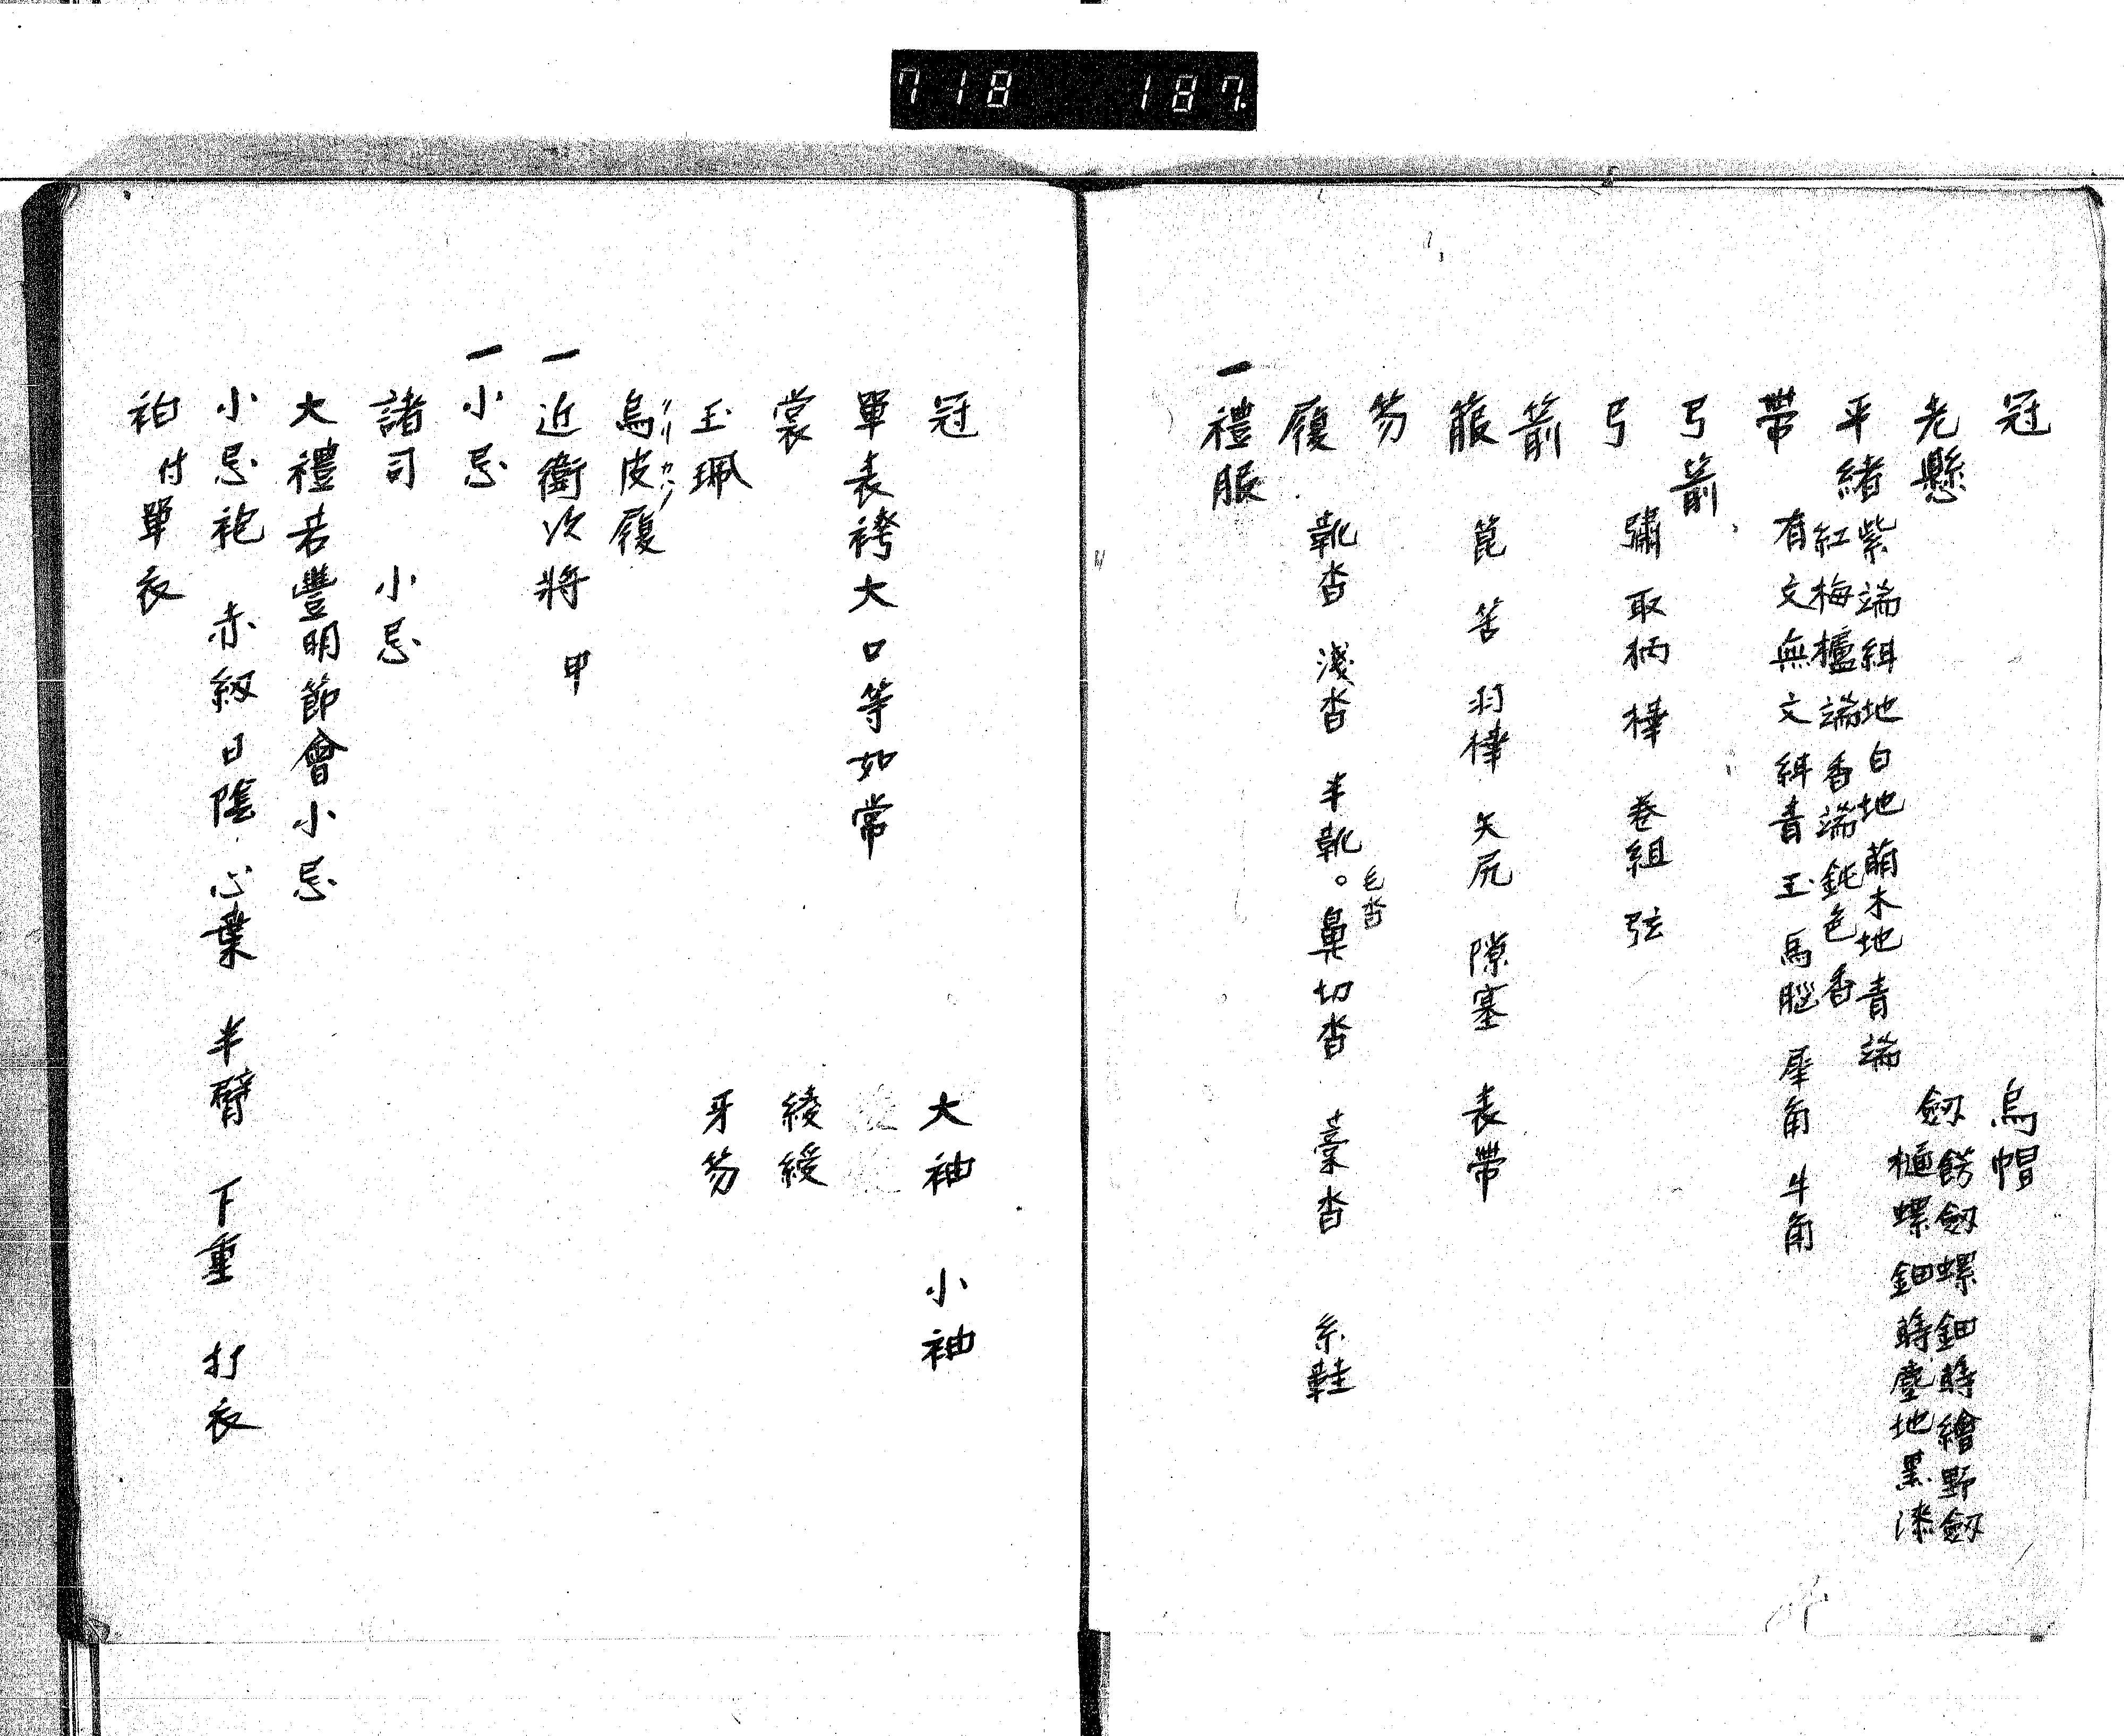 718 187
冠 烏帽
老懸 劔 餝劔螺鈿蒔繪野劔
樋螺鈿蒔塵地黒漆
平緒 紫端緂地白地萠木地青端
紅梅櫨端香端鈍色香
帶 有文無文緂青玉馬腦犀角牛角
弓箭
弓 彇取柄樺卷組弦
箭
箙 箆筈羽樺矢尻隙塞表帶
笏
履 靴沓 淺沓 半靴。鼻切沓 藁沓 糸鞋
毛沓
一禮服
冠 大袖 小袖
單表袴大口等如常
裳 綾綬
玉珮 牙笏
烏皮履
一近衛次將 甲
一小忌
諸司 小忌
大禮若豐明節會小忌
小忌袍 赤紐日陰心葉 半臂 下重 打衣
袙付單衣